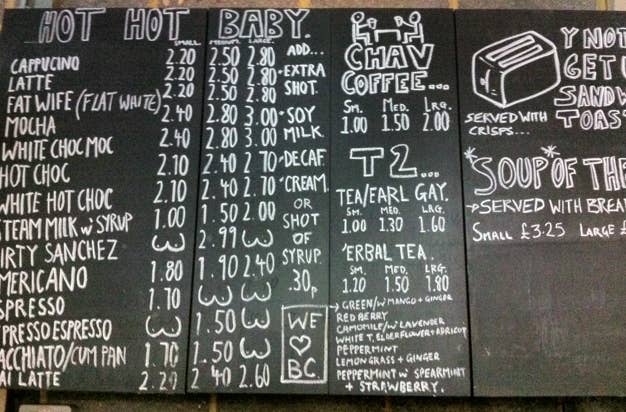 HOT HOT BABY.
SMALL. MEDIUM. LARGE.
CAPPUCINO 2.20 2.50 2.80
LATTE 2.20 2.50 2.80
FAT WIFE (FLAT WHITE) 2.20 2.50 2.80
MOCHA 2.40 2.80 3.00
WHITE CHOC MOC 2.40 2.80 3.00
HOT CHOC 2.10 2.40 2.70
WHITE HOT CHOC 2.10 2.40 2.70
STEAM MILK w' SYRUP 1.00 1.50 2.00
IRTY SANCHEZ ω 2.99 ω
MERICANO 1.80 1.90 2.40
SPRESSO 1.70 ω ω
PRESSO ESPRESSO ω 1.50 ω
ACCHIATO/CUM PAN 1.70 1.50 ω
AI LATTE 2.20 2.40 2.60
ADD...
•EXTRA
SHOT.
•SOY
MILK.
•DECAF.
•CREAM.
OR
SHOT
OF
SYRUP
.30p
WE
♡
BC.
CHAV
COFFEE...
SM. MED. LRG.
1.00 1.50 2.00
T2...
TEA/EARL GAY.
SM. MED. LRG.
1.00 1.30 1.60
'ERBAL TEA.
SM. MED. LRG.
1.20 1.50 1.80
→GREEN/W MANGO + GINGER
RED BERRY
CAMOMILE/W' LAVENDER
WHITE T, ELDERFLOWER + APRICOT
PEPPERMINT
LEMONGRASS + GINGER
PEPPERMINT W' SPEARMINT
+ STRAWBERRY.
Y NOT
GET
SANDW
TOAS
SERVED WITH
CRISPS...
*SOUP* OF THE
→SERVED WITH BREA
SMALL £3.25 LARGE £